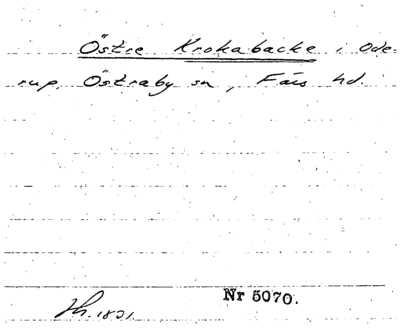 Östre Krokabacke i Ode-
rup, Östraby sn, Färs hd.
Nr 5070.
Lh. 1831